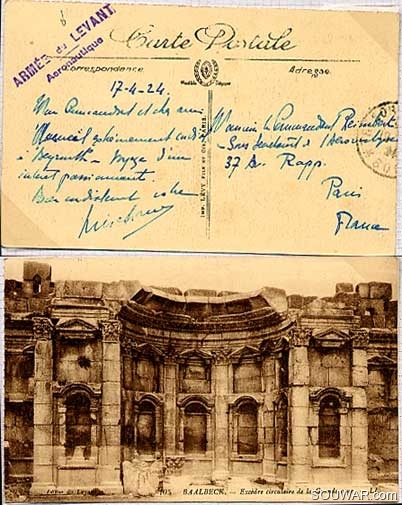 ARMÉE du LEVANT
Aéronautique
Carte Postale
Correspondance
Adresse
17-4-24.
Mon Commandant et cher ami
Accueil extrêmement cordial
à Beyrouth - Voyage d'un
intérêt passionnant.
Bien cordialement votre
Monsieur le Commandant
Sous Secrétariat à l'Aéronautique
37 Av. Rapp.
Paris
France
IMP. LÉVY FILS ET Cie, PARIS.
103 BAALBECK. - Exèdre circulaire de la
LL.
SOUWAR.com